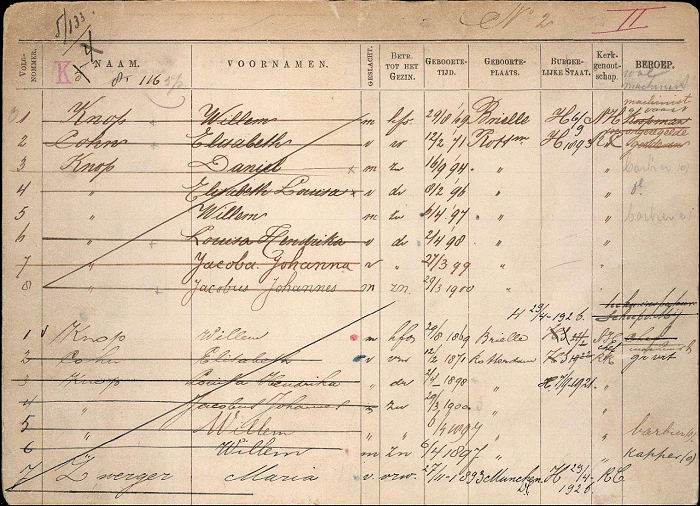 5/133
4
No 2 II
VOLGNOMMER. NAAM. VOORNAMEN. GESLACHT. BETR. TOT HET GEZIN. GEBOORTETIJD. GEBOORTEPLAATS. BURGERLIJKE STAAT. Kerkgenootschap. BEROEP.
K 116
machinist
1 Knop Willem m hfd 29/8 '69 Brielle H 6/9 NH
2 Cohn Elisabeth v vr 12/2 '71 Rottm H 1893 RC
3 Knop Daniel m zn 16/9 '94 " barbier
4 " Elisabeth Louisa v dr 8/2 96 "
5 " Willem m zn 6/4 '97 " barbier
6 " Louisa Hendrika v dr 2/4 '98 "
7 " Jacoba Johanna v " 27/3 99 "
8 " Jacobus Johannes m zn 29/3 1900 "
H 29/4-1926.
1 Knop Willem m hfd 29/8 1869 Brielle NH
2 Cohn Elisabeth v vrw 12/2 1871 Rotterdam RK
3 Knop Louisa Hendrika " dr 2/4 1898 " 1921.
4 " Jacobus Johannes m zn 29/3 1900 "
5 " Willem " " 1897 " barbier
6 Willem m zn 6/4 1897 " " kapper (o)
7 Zwerger Maria v. vrw. 27/11-1893 Munchen H 29/4-1926. RC.